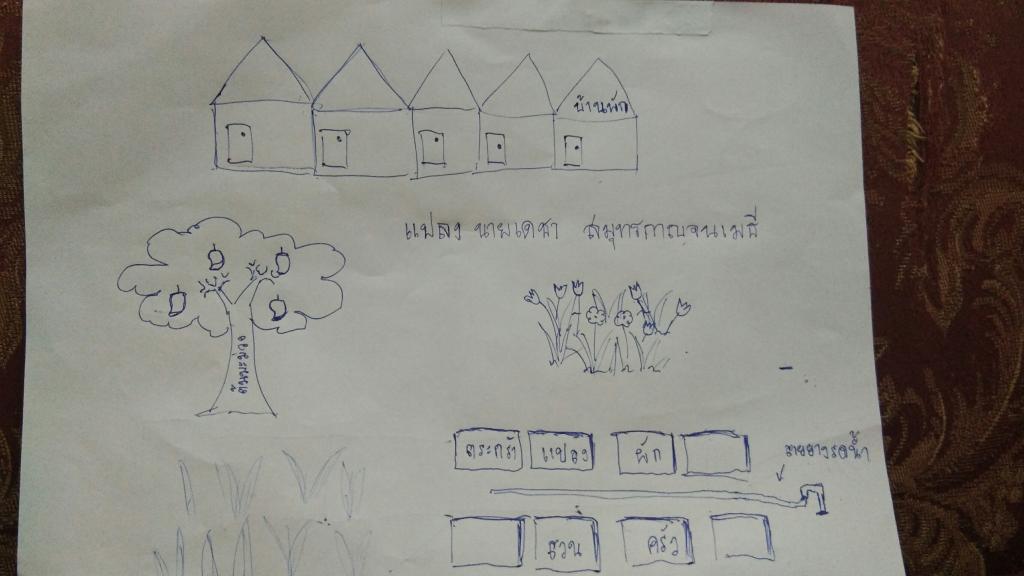 บ้านพัก
แปลง นายเดชา สมุทรกาญจนเมธี
ต้นมะม่วง
ตระกร้า แปลง ผัก
สายยางรดน้ำ
สวน ครัว